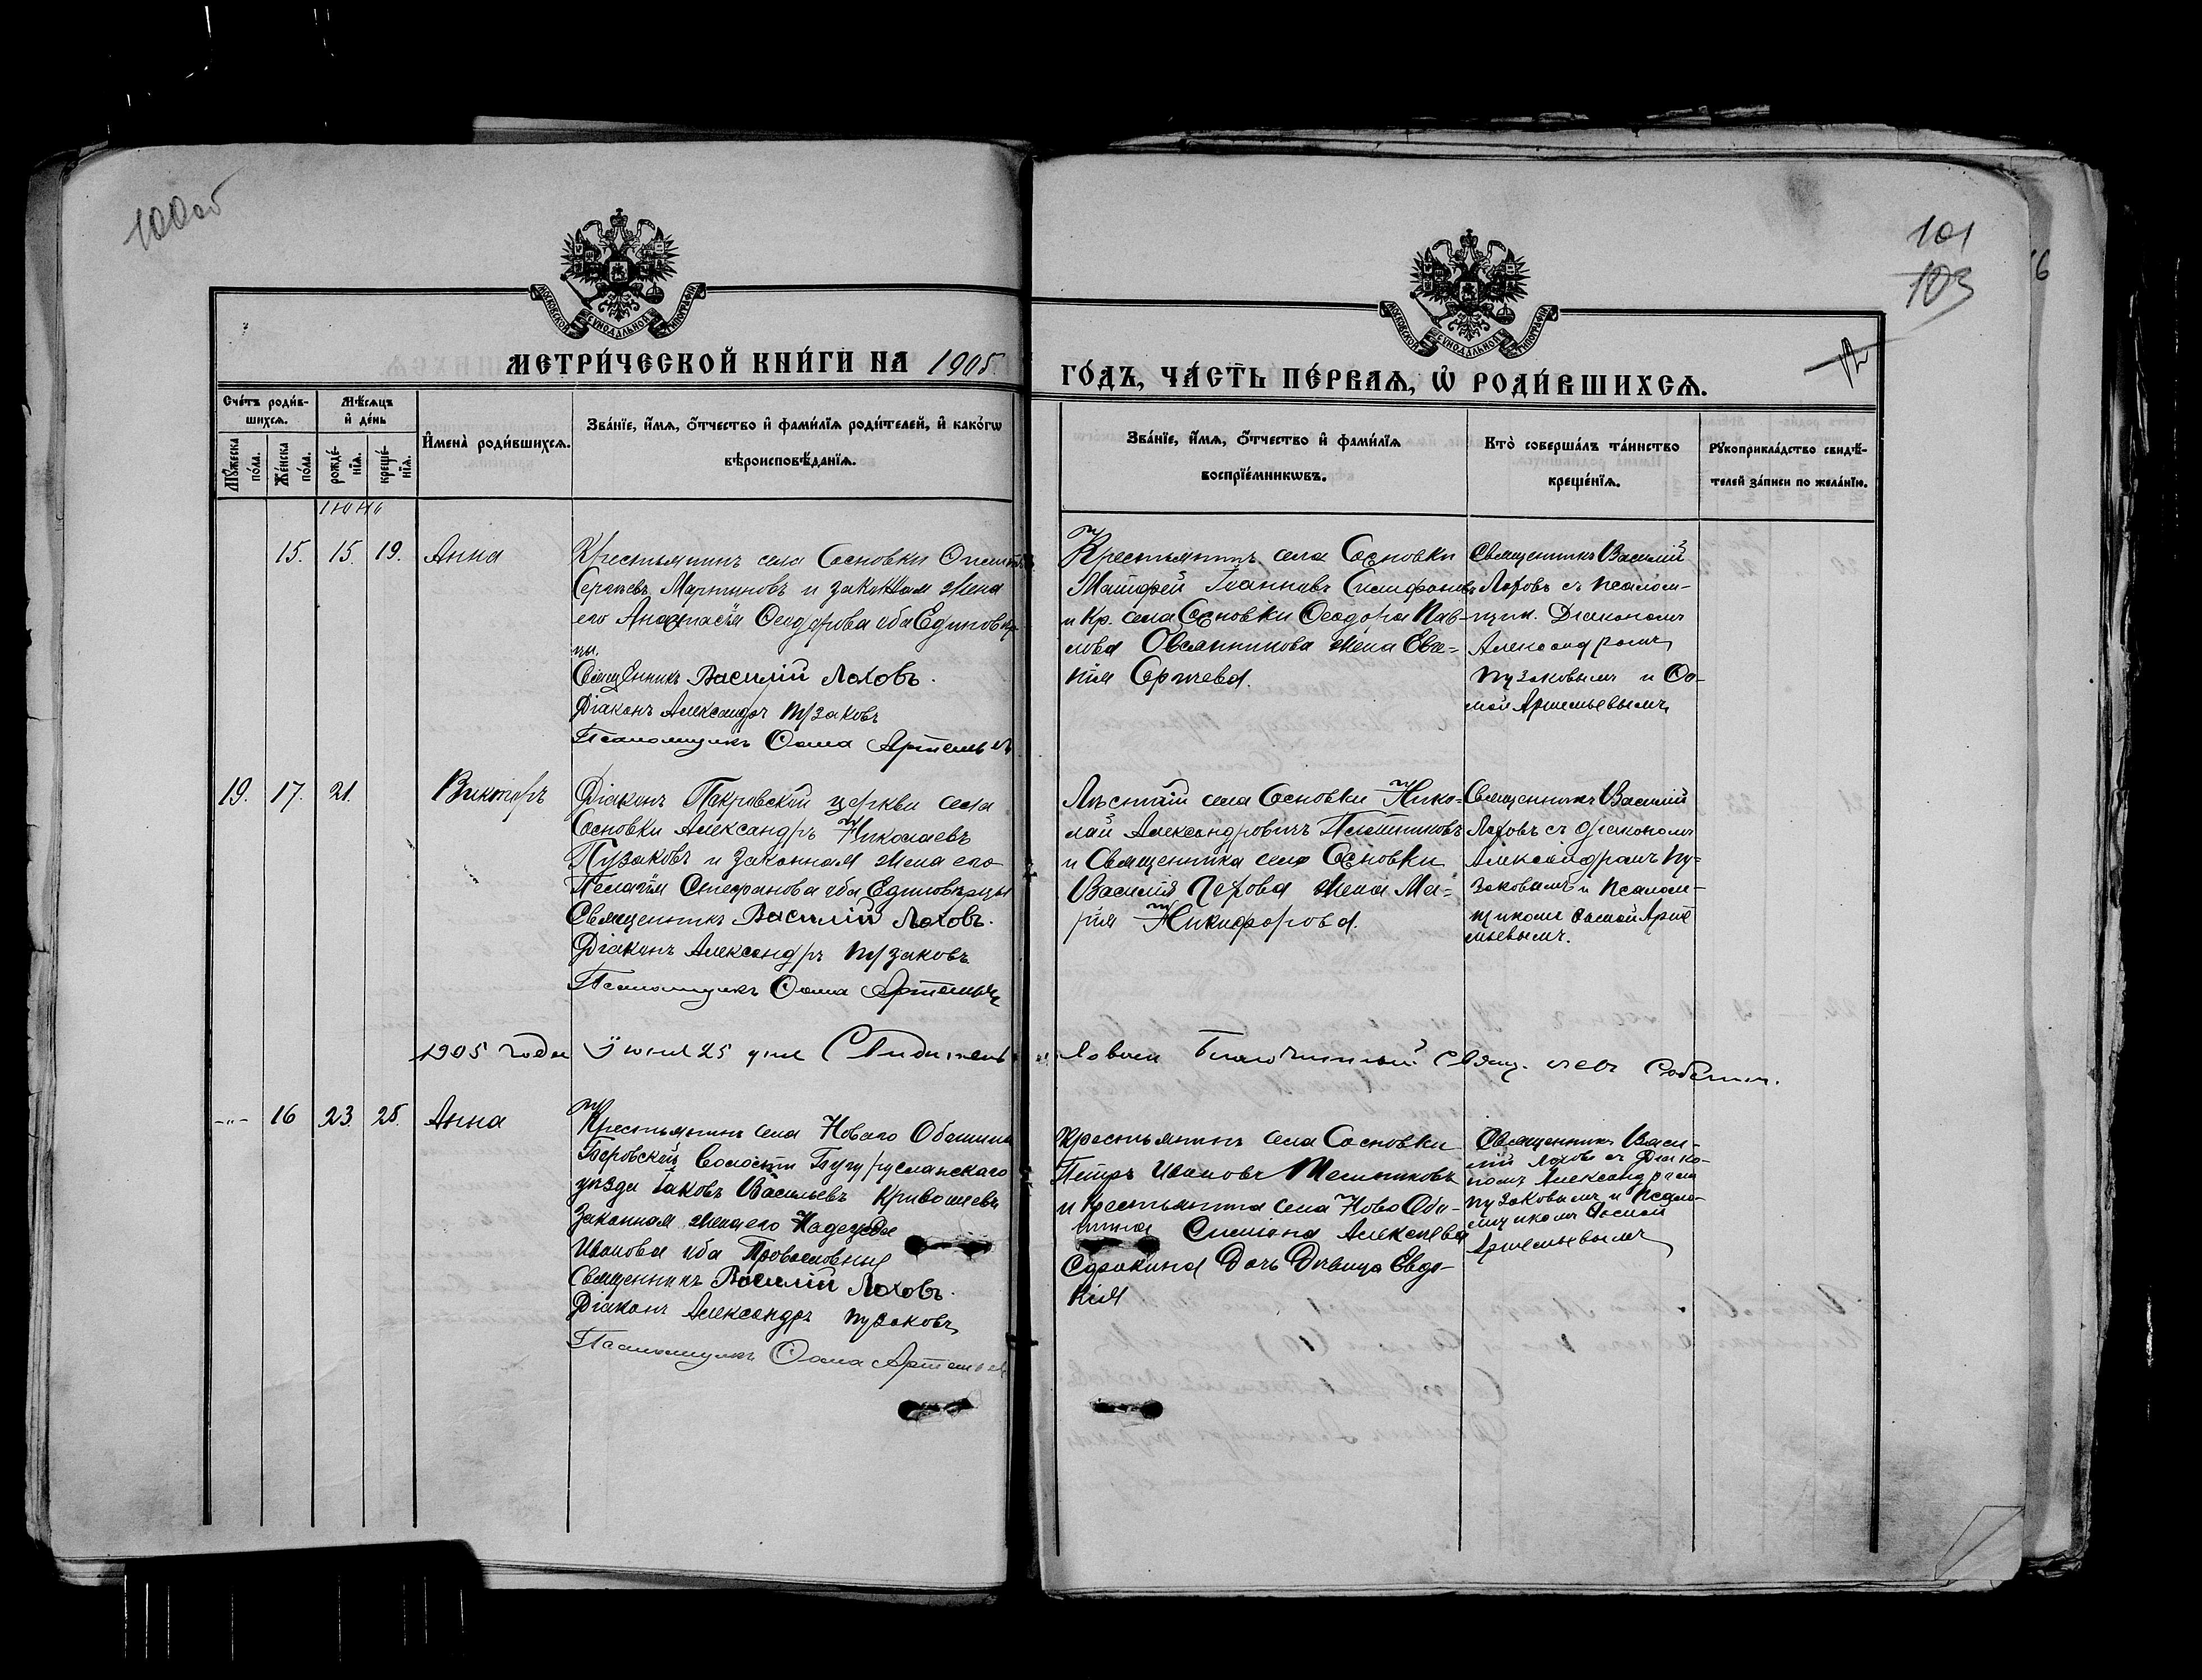 100об
101
103
МОСКОВСКОЙ СѴНОДАЛЬНОЙ ТИПОГРАФІИ
МОСКОВСКОЙ СѴНОДАЛЬНОЙ ТИПОГРАФІИ
МЕТРИ́ЧЕСКОЙ КНИ́ГИ НА 1905
ГО́ДЪ, ЧА́СТЬ ПЕ́РВАѦ, Ѡ҆ РОДИ́ВШИХСѦ.
Сче́тъ роди́в-
шихсѧ.
Мꙋ́жеска по́ла.
Же́нска по́ла.
Мѣ́сѧцъ
и҆ де́нь
рожде́-
нїѧ.
креще́-
нїѧ.
И҆мена̀ роди́вшихсѧ.
Зва́нїе, и҆́мѧ, ѻ҆́тчество и҆ фами́лїѧ роди́телей, и҆ како́гѡ
вѣроисповѣ́данїѧ.
Зва́нїе, и҆́мѧ, ѻ҆́тчество и҆ фами́лїѧ
воспрїе́мникѡвъ.
Кто̀ соверша́лъ та́инство
креще́нїѧ.
Рꙋкоприкла́дство свидѣ́-
телей за́писи по жела́нїю.
15. 15. 19. Анна
Крестьянинъ села Сосновки
Сергѣевъ Мартыновъ и законная жена
его Анастасія Ѳеодорова оба Единовѣр-
цы.
Священникъ Василій Лоховъ.
Діаконъ Александръ Пузаковъ
Псаломщикъ Ѳома Артемьевъ
Крестьянинъ села Сосновки
Матфей Іоанновъ
и Кр. села Сосновки Ѳеодора Пав-
лова Овсянникова жена Ев
кія Сергѣева.
Священникъ Василій
Лоховъ съ псалом-
щик. Діакономъ
Александромъ
Пузаковымъ и Ѳо-
мой Артемьевымъ
19. 17. 21. Викторъ
Діаконъ Покровской церкви села
Сосновки Александръ Николаевъ
Пузаковъ и законная жена его
Пелагія Стефанова оба Единовѣрцы
Священникъ Василій Лоховъ.
Діаконъ Александръ Пузаковъ
Псаломщикъ Ѳома Артемьевъ
Лѣсничій села Сосновки Нико-
лай Александровичъ Плотниковъ
и Священника села Сосновки
Василія Лохова жена Ма-
рія Никифорова.
Священникъ Василій
Лоховъ съ діакономъ
Александромъ Пу-
заковымъ и псалом-
щикомъ Ѳомой Арте
мьевымъ.
1905 года Іюня 25 дня Свидѣтель
Благочинный Свящ.
-„- 16 23. 25. Анна
Крестьянинъ села Новаго
волости Бугурусланскаго
уѣзда Іаковъ Васильевъ Кривошеевъ
законная жена его Надежда
Иванова оба Православные
Священникъ Василій Лоховъ.
Діаконъ Александръ Пузаковъ
Псаломщикъ Ѳома Артемьевъ
Крестьянинъ села Сосновки
Петръ Ивановъ
и крестьянина села Ново
Алексѣева
Сорокина дочь дѣвица Евдо-
кія
Священникъ Васи-
лій Лоховъ съ Діако-
номъ Александромъ
Пузаковымъ и псало-
мщикомъ Ѳомой
Артемьевымъ